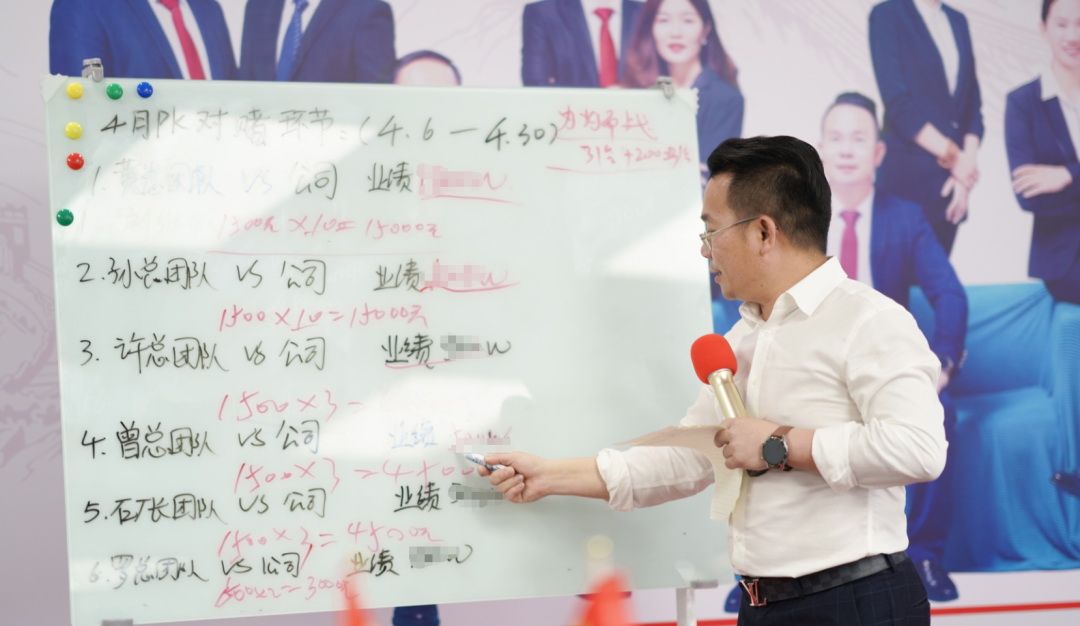 4月PK对赌环节:(4.6—4.30)
31台+200
1.黄总团队 VS 公司 业绩 W
1500元×10=15000元
2.孙总团队 VS 公司 业绩 W
1500×10=15000元
3.许总团队 VS 公司 业绩 W
1500×3=
4.曾总团队 VS 公司 业绩
1500×3=4500
5.石厂长团队 VS 公司 业绩
1500×3=4500元
6.罗总团队 VS 公司 业绩 W